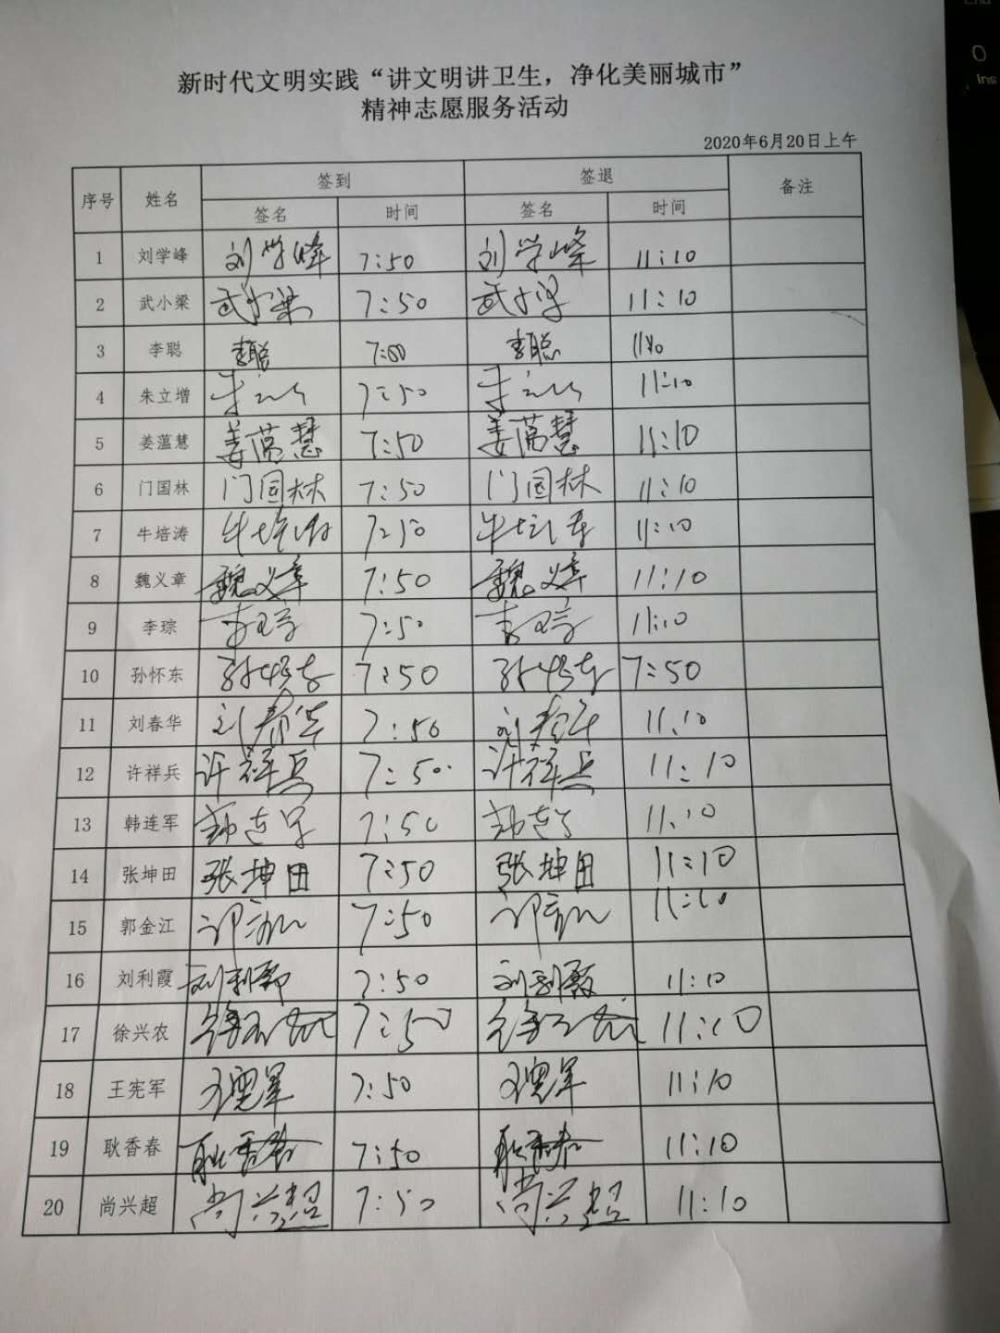 新时代文明实践“讲文明讲卫生，净化美丽城市”
精神志愿服务活动
2020年6月20日上午
序号 姓名 签到 签退 备注
签名 时间 签名 时间
1 刘学峰 刘学峰 7:50 刘学峰 11:10
2 武小梁 武小梁 7:50 武小梁 11:10
3 李聪 李聪 李聪
4 朱立增 7:50 11:10
5 姜蕰慧 姜蕰慧 7:50 姜蕰慧 11:10
6 门国林 门国林 7:50 门国林 11:10
7 牛培涛 牛培涛 7:50 牛培涛 11:10
8 魏义章 魏义章 7:50 魏义章 11:10
9 李琮 李琮 7:50 李琮 11:10
10 孙怀东 孙怀东 7:50 孙怀东 7:50
11 刘春华 刘春华 7:50 刘春华 11:10
12 许祥兵 许祥兵 7:50 许祥兵 11:10
13 韩连军 韩连军 7:50 韩连军 11:10
14 张坤田 张坤田 7:50 张坤田 11:10
15 郭金江 7:50 11:10
16 刘利霞 刘利霞 7:50 刘利霞 11:10
17 徐兴农 徐兴农 7:50 徐兴农 11:10
18 王宪军 王宪军 7:50 王宪军 11:10
19 耿香春 耿香春 7:50 耿香春 11:10
20 尚兴超 尚兴超 7:50 尚兴超 11:10